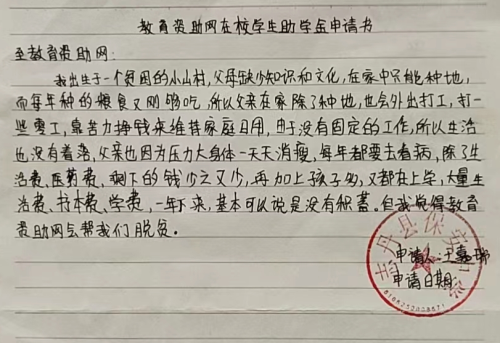 教育资助网在校学生助学金申请书
至教育资助网:
我出生于一个贫困的小山村,父母缺少知识和文化,在家中只能种地,
而每年种的粮食又刚够吃,所以父亲在家除了种地,也会外出打工,打一
些零工,靠苦力挣钱来维持家庭日用,由于没有固定的工作,所以生活
也没有着落,父亲也因为压力大身体一天天消瘦,每年都要去看病,除了生
活费、医药费、剩下的钱少之又少,再加上孩子多,又都在上学,大量生
活费、书本费、学费,一年下来,基本可以说是没有积蓄。自我觉得教育
资助网会帮我们脱贫。
申请人:王嘉瑞
申请日期: